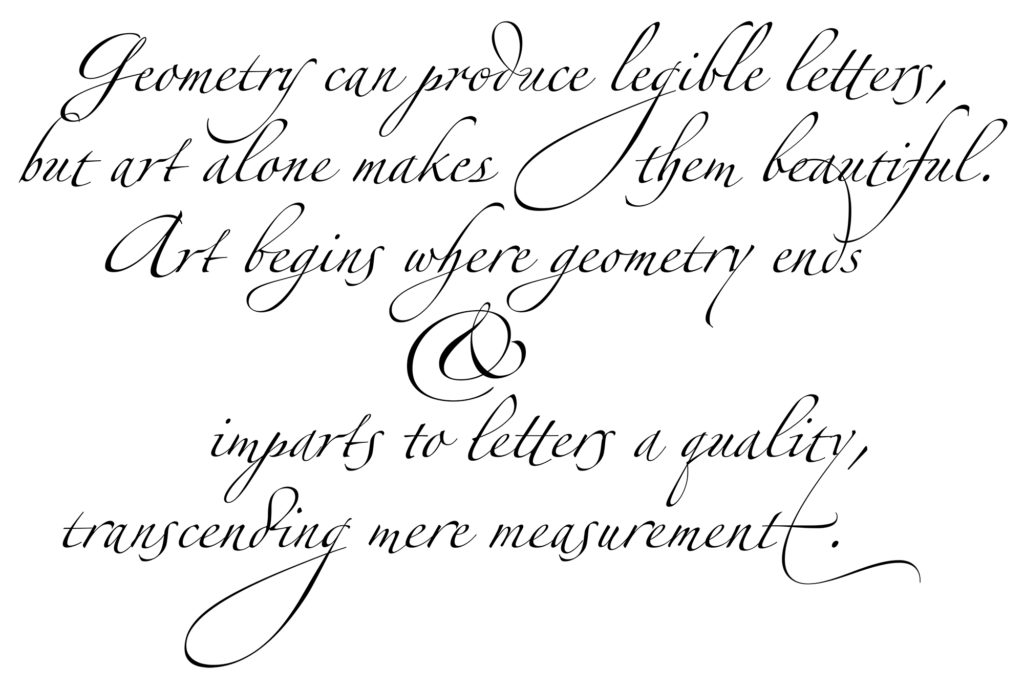 Geometry can produce legible letters,
but art alone makes them beautiful.
Art begins where geometry ends
&
imparts to letters a quality,
transcending mere measurement.